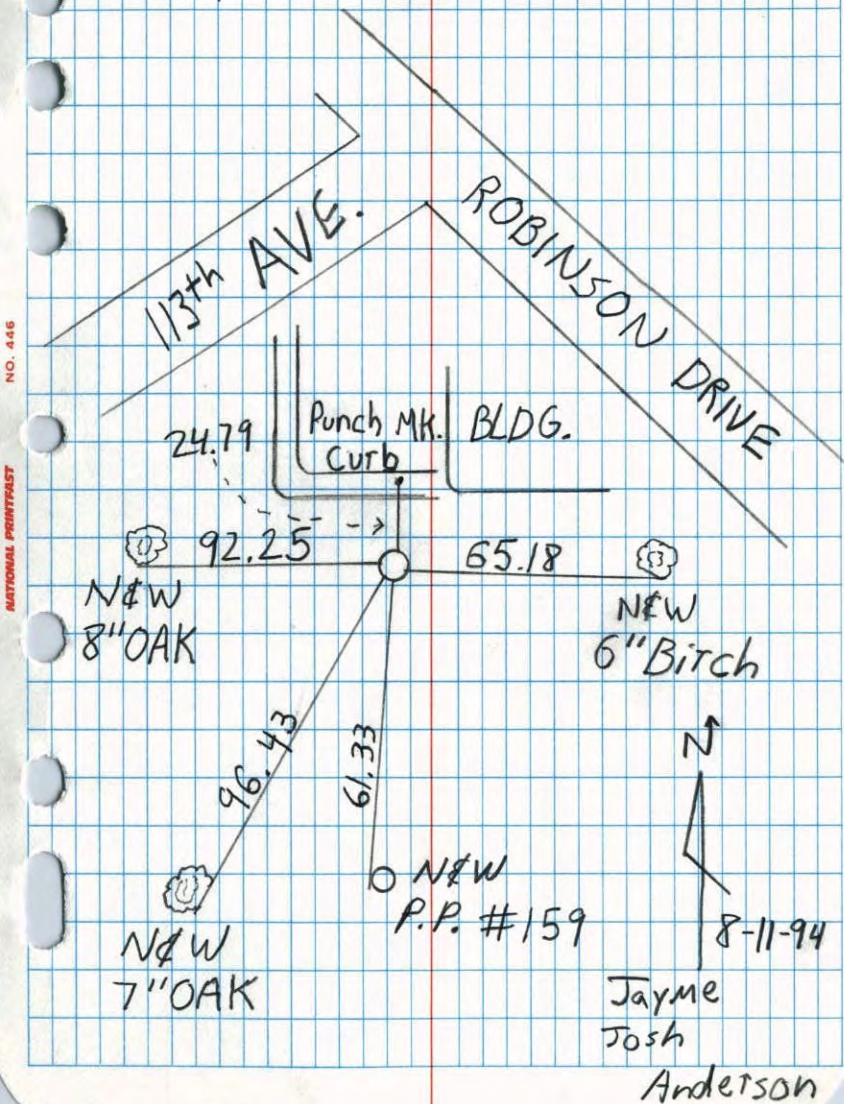 NO. 446
NATIONAL PRINTFAST
113th AVE.
ROBINSON DRIVE
24.79
Punch MK.
Curb
BLDG.
92.25
65.18
N&W
8"OAK
N&W
6"Birch
96.43
61.33
N
N&W
P.P. #159
N&W
7"OAK
8-11-94
Jayme
Josh
Anderson